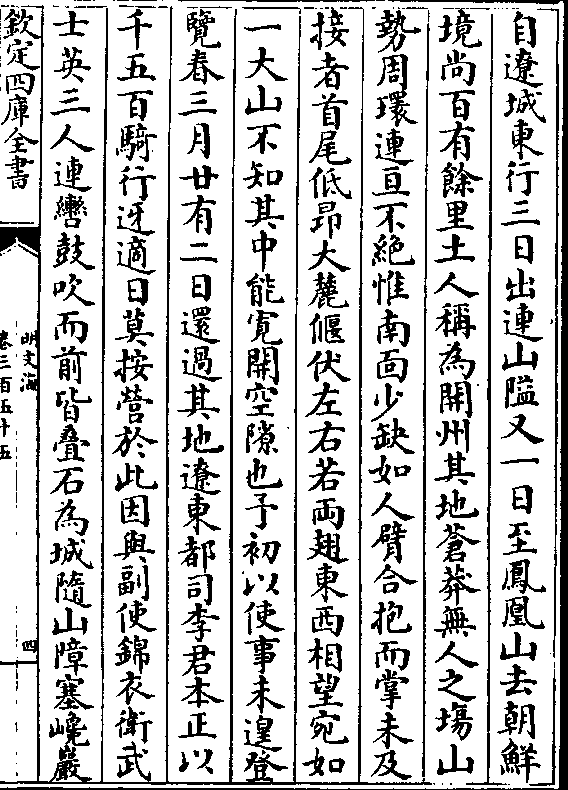 自遼城東行三日出連山隘又一日至鳳凰山去朝鮮
境尚百有餘里土人稱為開州其地蒼莽無人之塲山
勢周環連亘不絶惟南面少缺如人臂合抱而掌未及
接者首尾低昂大麓偃伏左右若兩翅東西相望宛如
一大山不知其中能寛開空隙也予初以使事未遑登
覽春三月廿有二日還過其地遼東都司李君本正以
千五百騎行迓適日莫按營於此因與副使錦衣衛武
士英三人連轡鼓吹而前皆疊石為城隨山障塞巉巖
欽定四庫全書
明文海
卷三百五十五
四